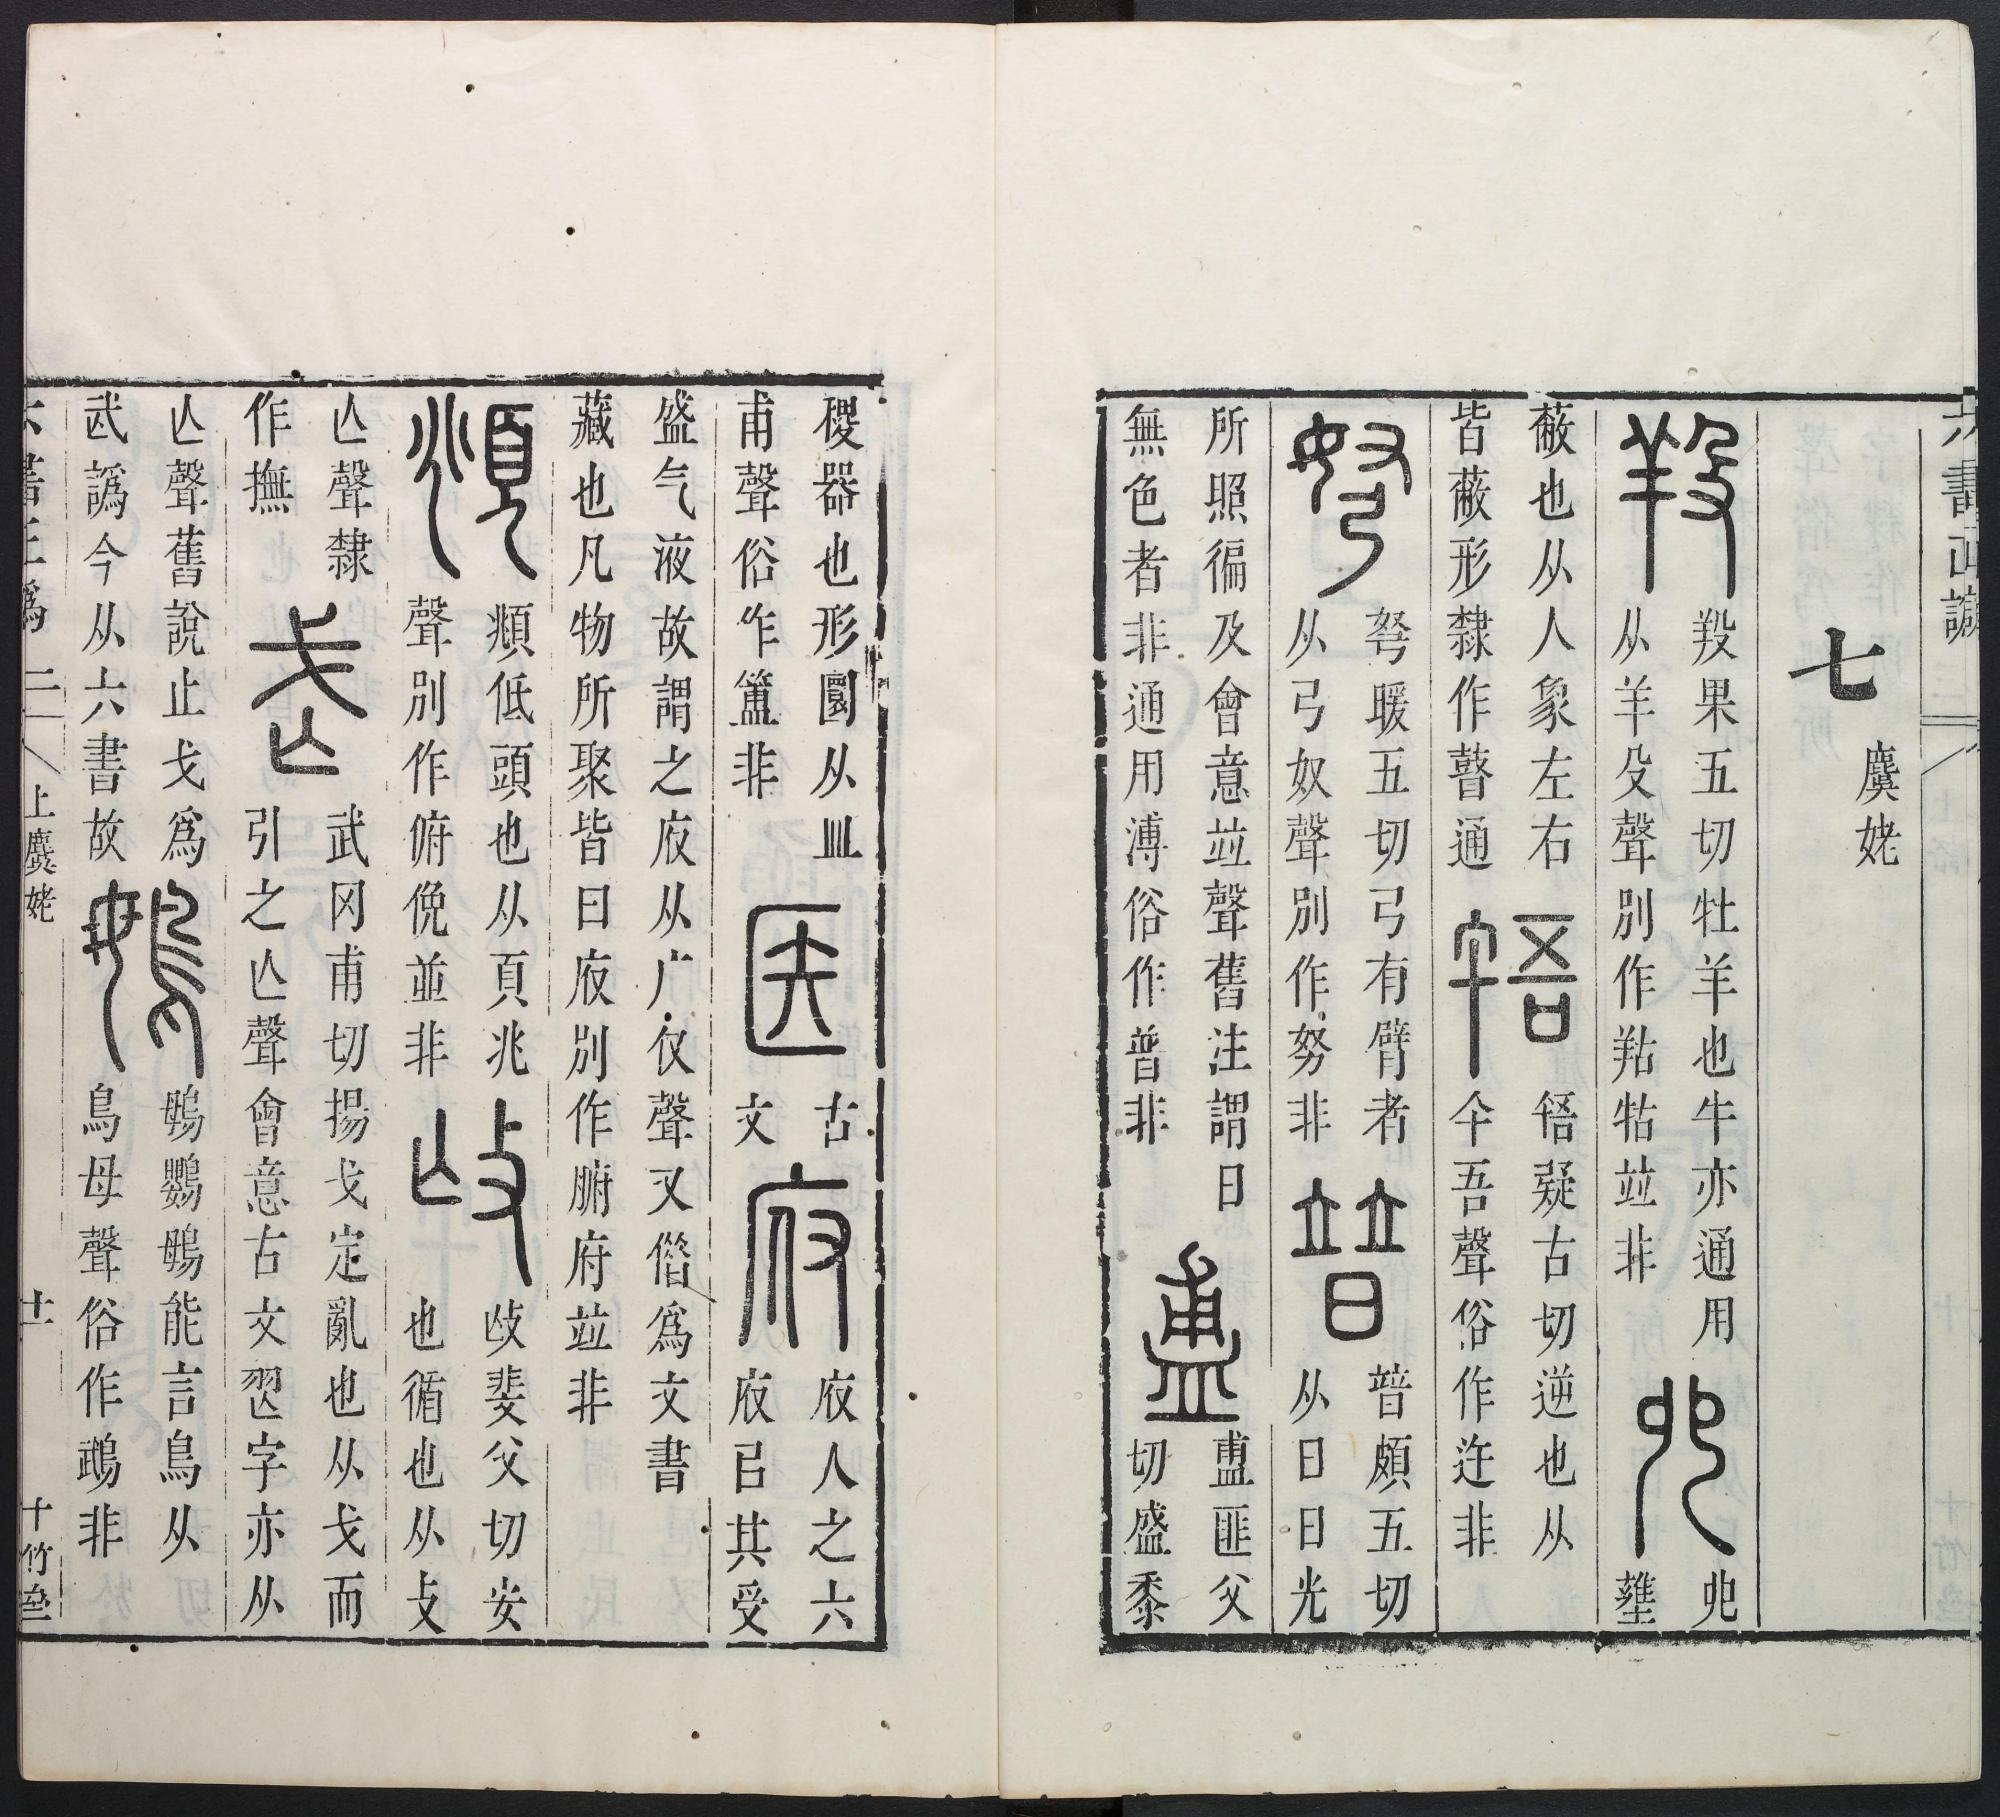 六書正譌
七
麌姥
羖果五切牡羊也牛亦通用
从羊殳聲別作羖牯竝非
𠑹
蔽也从人象左右
皆蔽形隸作瞽通
啎疑古切逆也从
午吾聲俗作迕非
弩暖五切弓有臂者
从弓奴聲別作努非
普頗五切
从日日光
所照徧及會意竝聲舊注謂日
無色者非通用溥俗作普非
盙匪父
切盛黍
稷器也形圜从皿
甫聲俗作簠非
古
文
府人之六
府㠯其受
盛气液故謂之府从广仅聲又偕爲文書
藏也凡物所聚皆曰府別作腑府竝非
頫低頭也从頁兆
聲別作俯俛並非
㩉斐父切安
也循也从攴
亾聲隸
作撫
武罔甫切揚戈定亂也从戈而
引之亾聲會意古文字亦从
亾聲舊說止戈爲
武譌今从六書故
鴟鸚鴟能言鳥从
鳥母聲俗作鵡非
六書正譌
二
上麌姥
十一
十竹